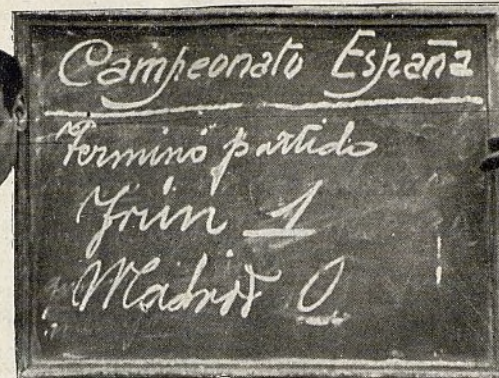 Campeonato España
Terminó partido
Irún 1
Madrid 0